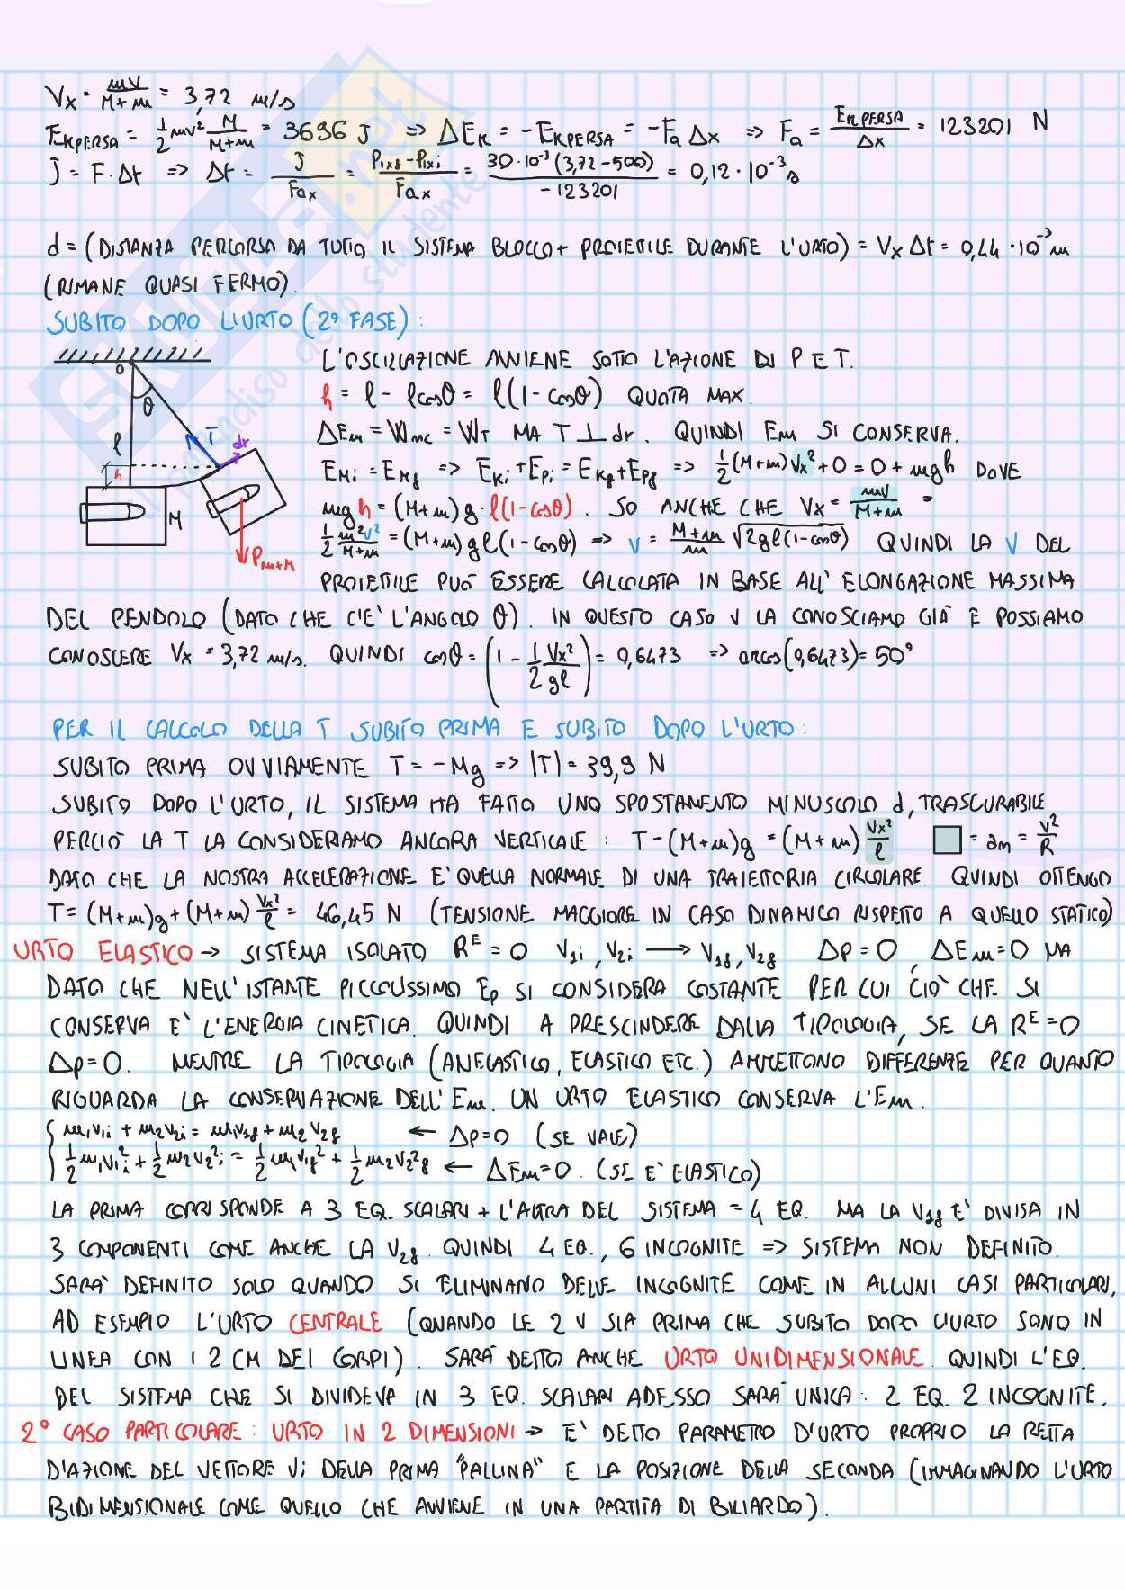 Vx = mV/(M+m) = 3,72 m/s
EKPERSA = 1/2 mv² M/(M+m) = 3636 J => ΔEK = -EKPERSA = -Fa Δx => Fa = EKPERSA/Δx = 123201 N
J = F·Δt => Δt = J/Fax = (P1xf - P1xi)/Fax = 30·10⁻³(3,72-500)/-123201 = 0,12·10⁻³s
d = (DISTANZA PERCORSA DA TUTTO IL SISTEMA BLOCCO + PROIETTILE DURANTE L'URTO) = Vx Δt = 0,44·10⁻³m
(RIMANE QUASI FERMO).
SUBITO DOPO L'URTO (2ª FASE):
L'OSCILLAZIONE AVVIENE SOTTO L'AZIONE DI P E T.
h = l - lcosθ = l(1-cosθ) QUOTA MAX
ΔEm = Wmc = WT MA T ⊥ dr. QUINDI Em SI CONSERVA.
EMi = EMf => EKi + EPi = EKf + EPf => 1/2(M+m)Vx² + 0 = 0 + mgh DOVE
mgh = (M+m)g·l(1-cosθ). SO ANCHE CHE Vx = mV/(M+m) =
1/2 m²v²/(M+m) = (M+m)gl(1-cosθ) => v = (M+m)/m √2gl(1-cosθ) QUINDI LA V DEL
PROIETTILE PUÒ ESSERE CALCOLATA IN BASE ALL'ELONGAZIONE MASSIMA
O
θ
l
T
dr
h
M
Pm+M
DEL PENDOLO (DATO CHE C'E' L'ANGOLO θ). IN QUESTO CASO V LA CONOSCIAMO GIÀ E POSSIAMO
CONOSCERE Vx = 3,72 m/s. QUINDI cosθ = (1 - 1/2 Vx²/gl) = 0,6473 => arcos(0,6473) = 50°
PER IL CALCOLO DELLA T SUBITO PRIMA E SUBITO DOPO L'URTO:
SUBITO PRIMA OVVIAMENTE T = -Mg => |T| = 39,9 N
SUBITO DOPO L'URTO, IL SISTEMA HA FATTO UNO SPOSTAMENTO MINUSCOLO d, TRASCURABILE,
PERCIÒ LA T LA CONSIDERAMO ANCORA VERTICALE: T-(M+m)g = (M+m) Vx²/l □ = an = v²/R
DATO CHE LA NOSTRA ACCELERAZIONE E' QUELLA NORMALE DI UNA TRAIETTORIA CIRCOLARE. QUINDI OTTENGO
T = (M+m)g + (M+m) Vx²/l = 46,45 N (TENSIONE MAGGIORE IN CASO DINAMICO RISPETTO A QUELLO STATICO)
URTO ELASTICO → SISTEMA ISOLATO Rᴱ = 0 V1i, V2i → V1f, V2f ΔP = 0, ΔEm = 0 MA
DATO CHE NELL'ISTANTE PICCOLISSIMO Ep SI CONSIDERA COSTANTE PER CUI CIÒ CHE SI
CONSERVA E' L'ENERGIA CINETICA. QUINDI A PRESCINDERE DALLA TIPOLOGIA, SE LA Rᴱ = 0
Δp = 0. MENTRE LA TIPOLOGIA (ANELASTICO, ELASTICO ETC.) AMMETTONO DIFFERENZE PER QUANTO
RIGUARDA LA CONSERVAZIONE DELL'Em. UN URTO ELASTICO CONSERVA L'Em.
{ m1V1i + m2V2i = m1V1f + m2V2f ← ΔP = 0 (SE VALE)
1/2 m1V1²i + 1/2 m2V2²i = 1/2 m1V1f² + 1/2 m2V2²f ← ΔEm = 0. (SE E' ELASTICO)
LA PRIMA CORRISPONDE A 3 EQ. SCALARI + L'ALTRA DEL SISTEMA = 4 EQ. MA LA V1f E' DIVISA IN
3 COMPONENTI COME ANCHE LA V2f. QUINDI 4 EQ., 6 INCOGNITE => SISTEMA NON DEFINITO.
SARA' DEFINITO SOLO QUANDO SI ELIMINANO DELLE INCOGNITE COME IN ALCUNI CASI PARTICOLARI,
AD ESEMPIO L'URTO CENTRALE (QUANDO LE 2 V SIA PRIMA CHE SUBITO DOPO L'URTO SONO IN
LINEA CON I 2 CM DEI CORPI). SARÀ DETTO ANCHE URTO UNIDIMENSIONALE. QUINDI L'EQ.
DEL SISTEMA CHE SI DIVIDEVA IN 3 EQ. SCALARI ADESSO SARA' UNICA: 2 EQ. 2 INCOGNITE.
2° CASO PARTICOLARE: URTO IN 2 DIMENSIONI → E' DETTO PARAMETRO D'URTO PROPRIO LA RETTA
D'AZIONE DEL VETTORE Vi DELLA PRIMA "PALLINA" E LA POSIZIONE DELLA SECONDA (IMMAGINANDO L'URTO
BIDIMENSIONALE COME QUELLO CHE AVVIENE IN UNA PARTITA DI BILIARDO).